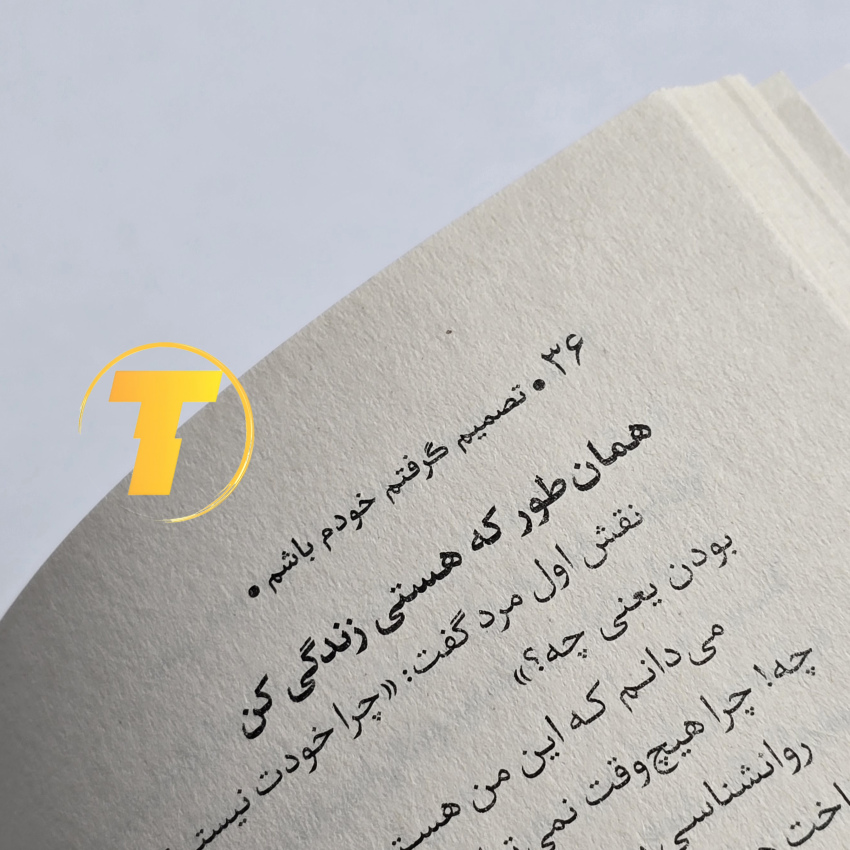 ۳۶ • تصمیم گرفتم خودم باشم •
همان‌طور که هستی زندگی کن
نقش اول مرد گفت: «چرا خودت نیستی
بودن یعنی چه؟»
می‌دانم که این من
چه! چرا هیچ‌وقت
روانشناسی
T